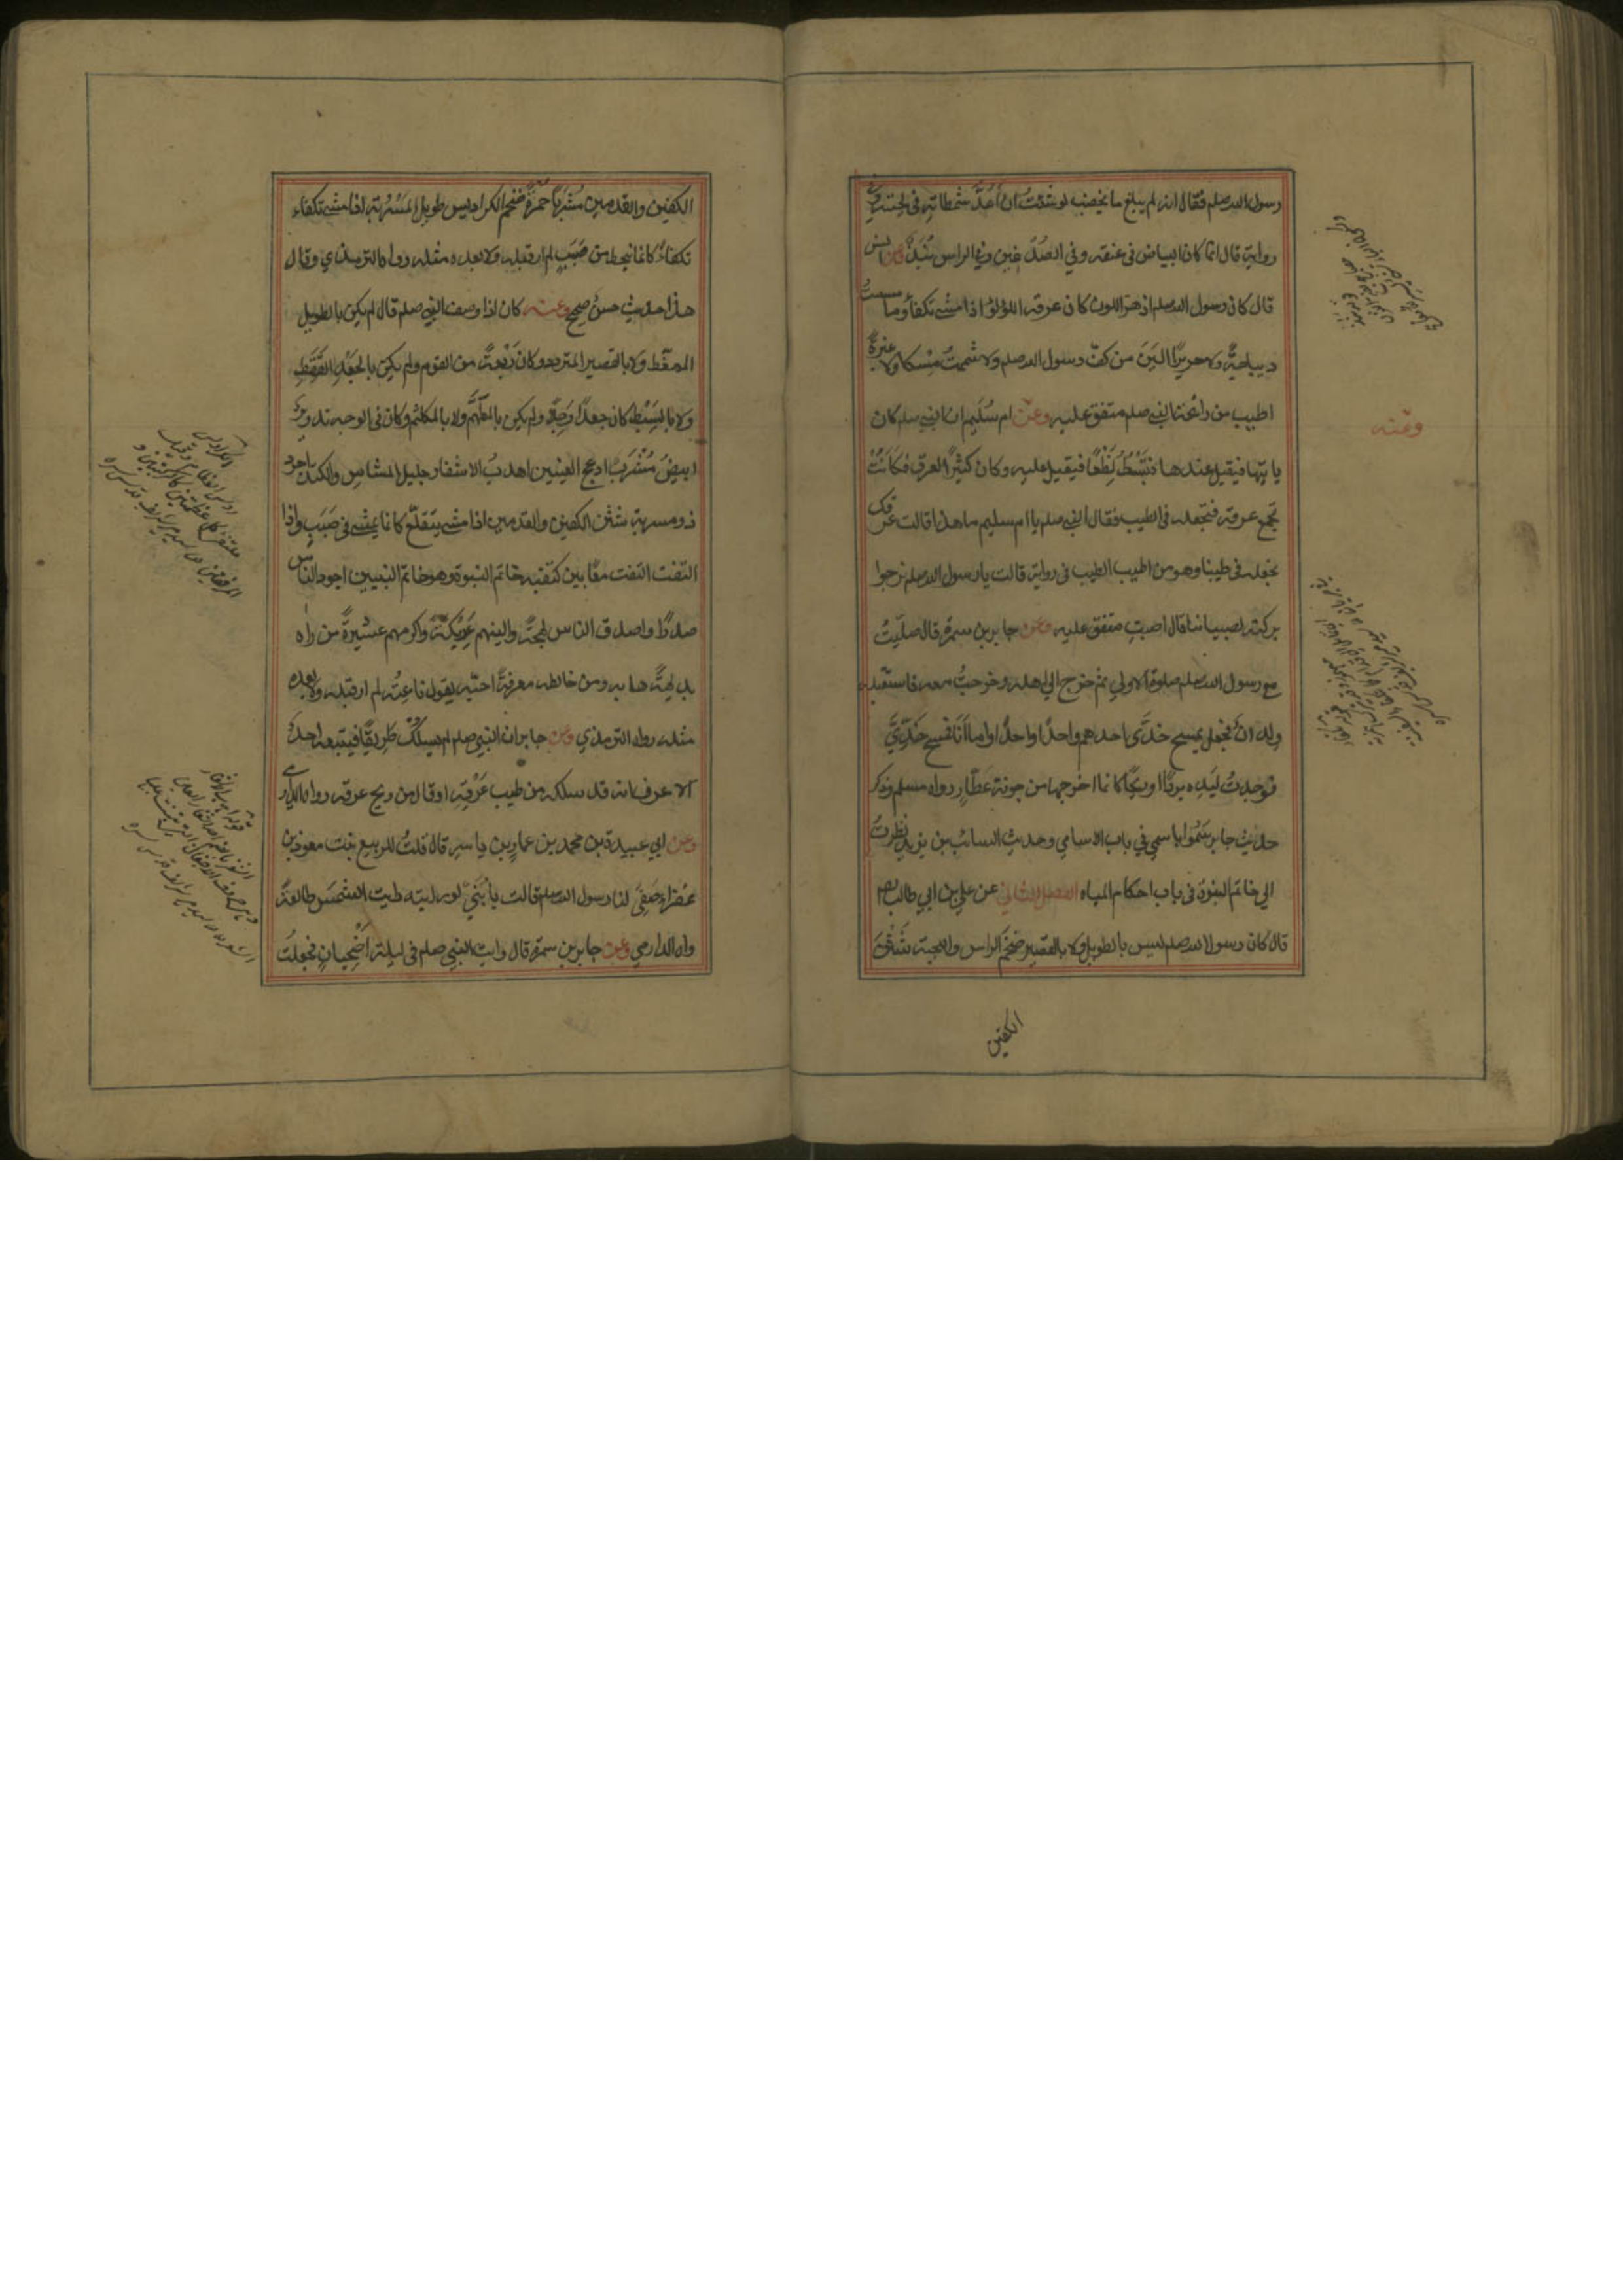 رسول الله صلعم فقال انه لم يبلغ ما يخضب لو شئت ان اعد شمطاته في لحيته وفي
رواية قال انما كان البياض في عنفقته وفي الصدغين وفي الراس نبذ وعن انس
قال كان رسول الله صلعم ازهر اللون كان عرقه اللؤلؤ اذا مشى تكفأ وما مسست
ديباجة ولا حريرا الين من كف رسول الله صلعم ولا شممت مسكا ولا عنبرة
اطيب من رائحة النبي صلعم متفق عليه وعن ام سليم ان النبي صلعم كان
ياتيها فيقيل عندها فتبسط نطعا فيقيل عليه وكان كثير العرق فكانت
تجمع عرقه فتجعله في الطيب فقال النبي صلعم يا ام سليم ما هذا قالت عرقك
نجعله في طيبنا وهو من اطيب الطيب في رواية قالت يا رسول الله صلعم نرجوا
بركته لصبياننا قال اصبت متفق عليه وعن جابر بن سمرة قال صليت
مع رسول الله صلعم صلوة الاولى ثم خرج الى اهله وخرجت معه فاستقبله
ولدان فجعل يمسح خدي احدهم واحدا واحدا واما انا فمسح خدي
فوجدت ليده بردا او ريحا كانما اخرجها من جونة عطار رواه مسلم وذكر
حديث جابر سموا باسمي في باب الاسامي وحديث السائب بن يزيد نظرت
الى خاتم النبوة في باب احكام المياه الفصل الثاني عن علي بن ابي طالب
قال كان رسول الله صلعم ليس بالطويل ولا بالقصير ضخم الراس واللحية شثن
الكفين
وعنه
الكفين والقدمين مشربا حمرة ضخم الكراديس طويل المسربة اذا مشى تكفاء
تكفاء كانما ينحط من صبب لم ار قبله ولا بعده مثله رواه الترمذي وقال
هذا حديث حسن صحيح وعنه كان اذا وصف النبي صلعم قال لم يكن بالطويل
الممغط ولا بالقصير المتردد وكان ربعة من القوم ولم يكن بالجعد القطط
ولا بالسبط كان جعدا رجلا ولم يكن بالمطهم ولا بالمكلثم وكان في الوجه تدوير
ابيض مشرب ادعج العينين اهدب الاشفار جليل المشاش والكتد اجرد
ذو مسربة شثن الكفين والقدمين اذا مشى يتقلع كانما يمشي في صبب واذا
التفت التفت معا بين كتفيه خاتم النبوة وهو خاتم النبيين اجود الناس
صدرا واصدق الناس لهجة والينهم عريكة واكرمهم عشيرة من راه
بديهة هابه ومن خالطه معرفة احبه يقول ناعته لم ار قبله ولا بعده
مثله رواه الترمذي وعن جابر ان النبي صلعم لم يسلك طريقا فيتبعه احد
الا عرف انه قد سلكه من طيب عرقه او قال من ريح عرقه رواه الدارمي
وعن ابي عبيدة بن محمد بن عمار بن ياسر قال قلت للربيع بنت معوذ بن
عفراء صفي لنا رسول الله صلعم قالت يا بني لو رايته رايت الشمس طالعة
رواه الدارمي وعن جابر بن سمرة قال رايت النبي صلعم في ليلة اضحيان فجعلت